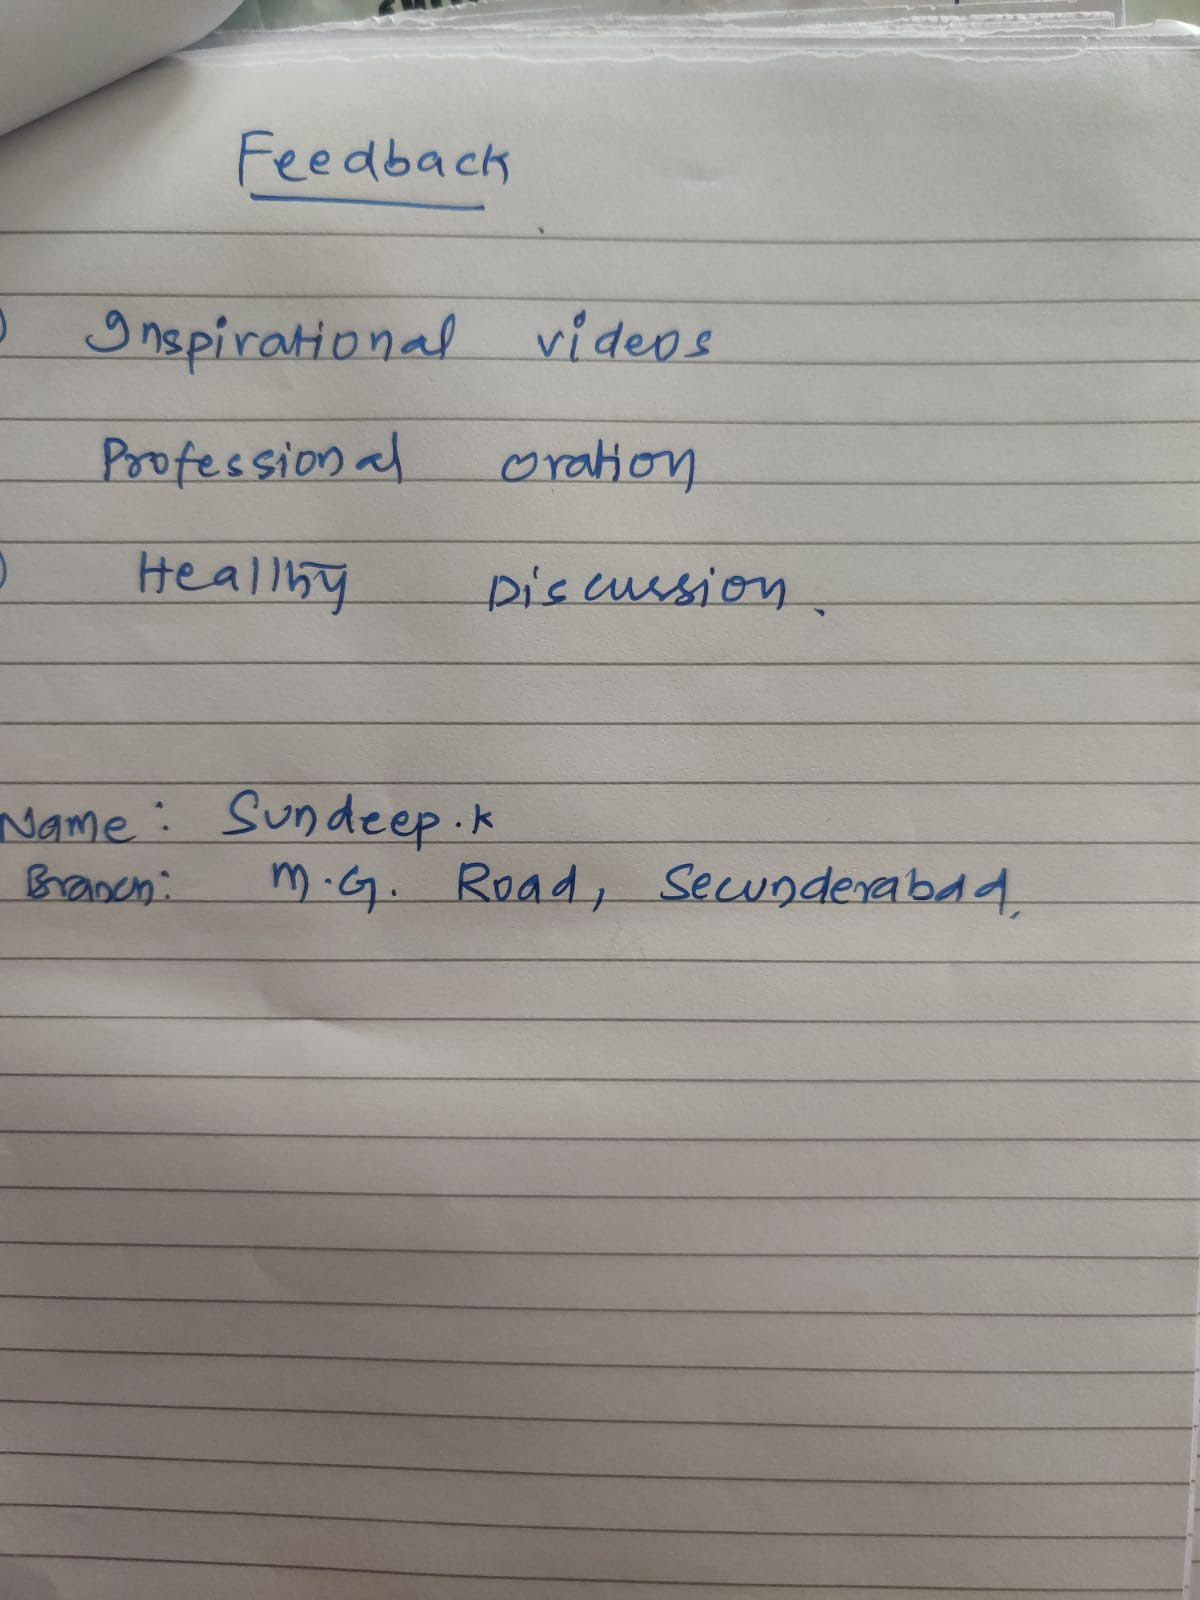 Feedback
) Inspirational videos
Professional oration
) Healthy Discussion.
Name: Sundeep.K
Branch: M.G. Road, Secunderabad.